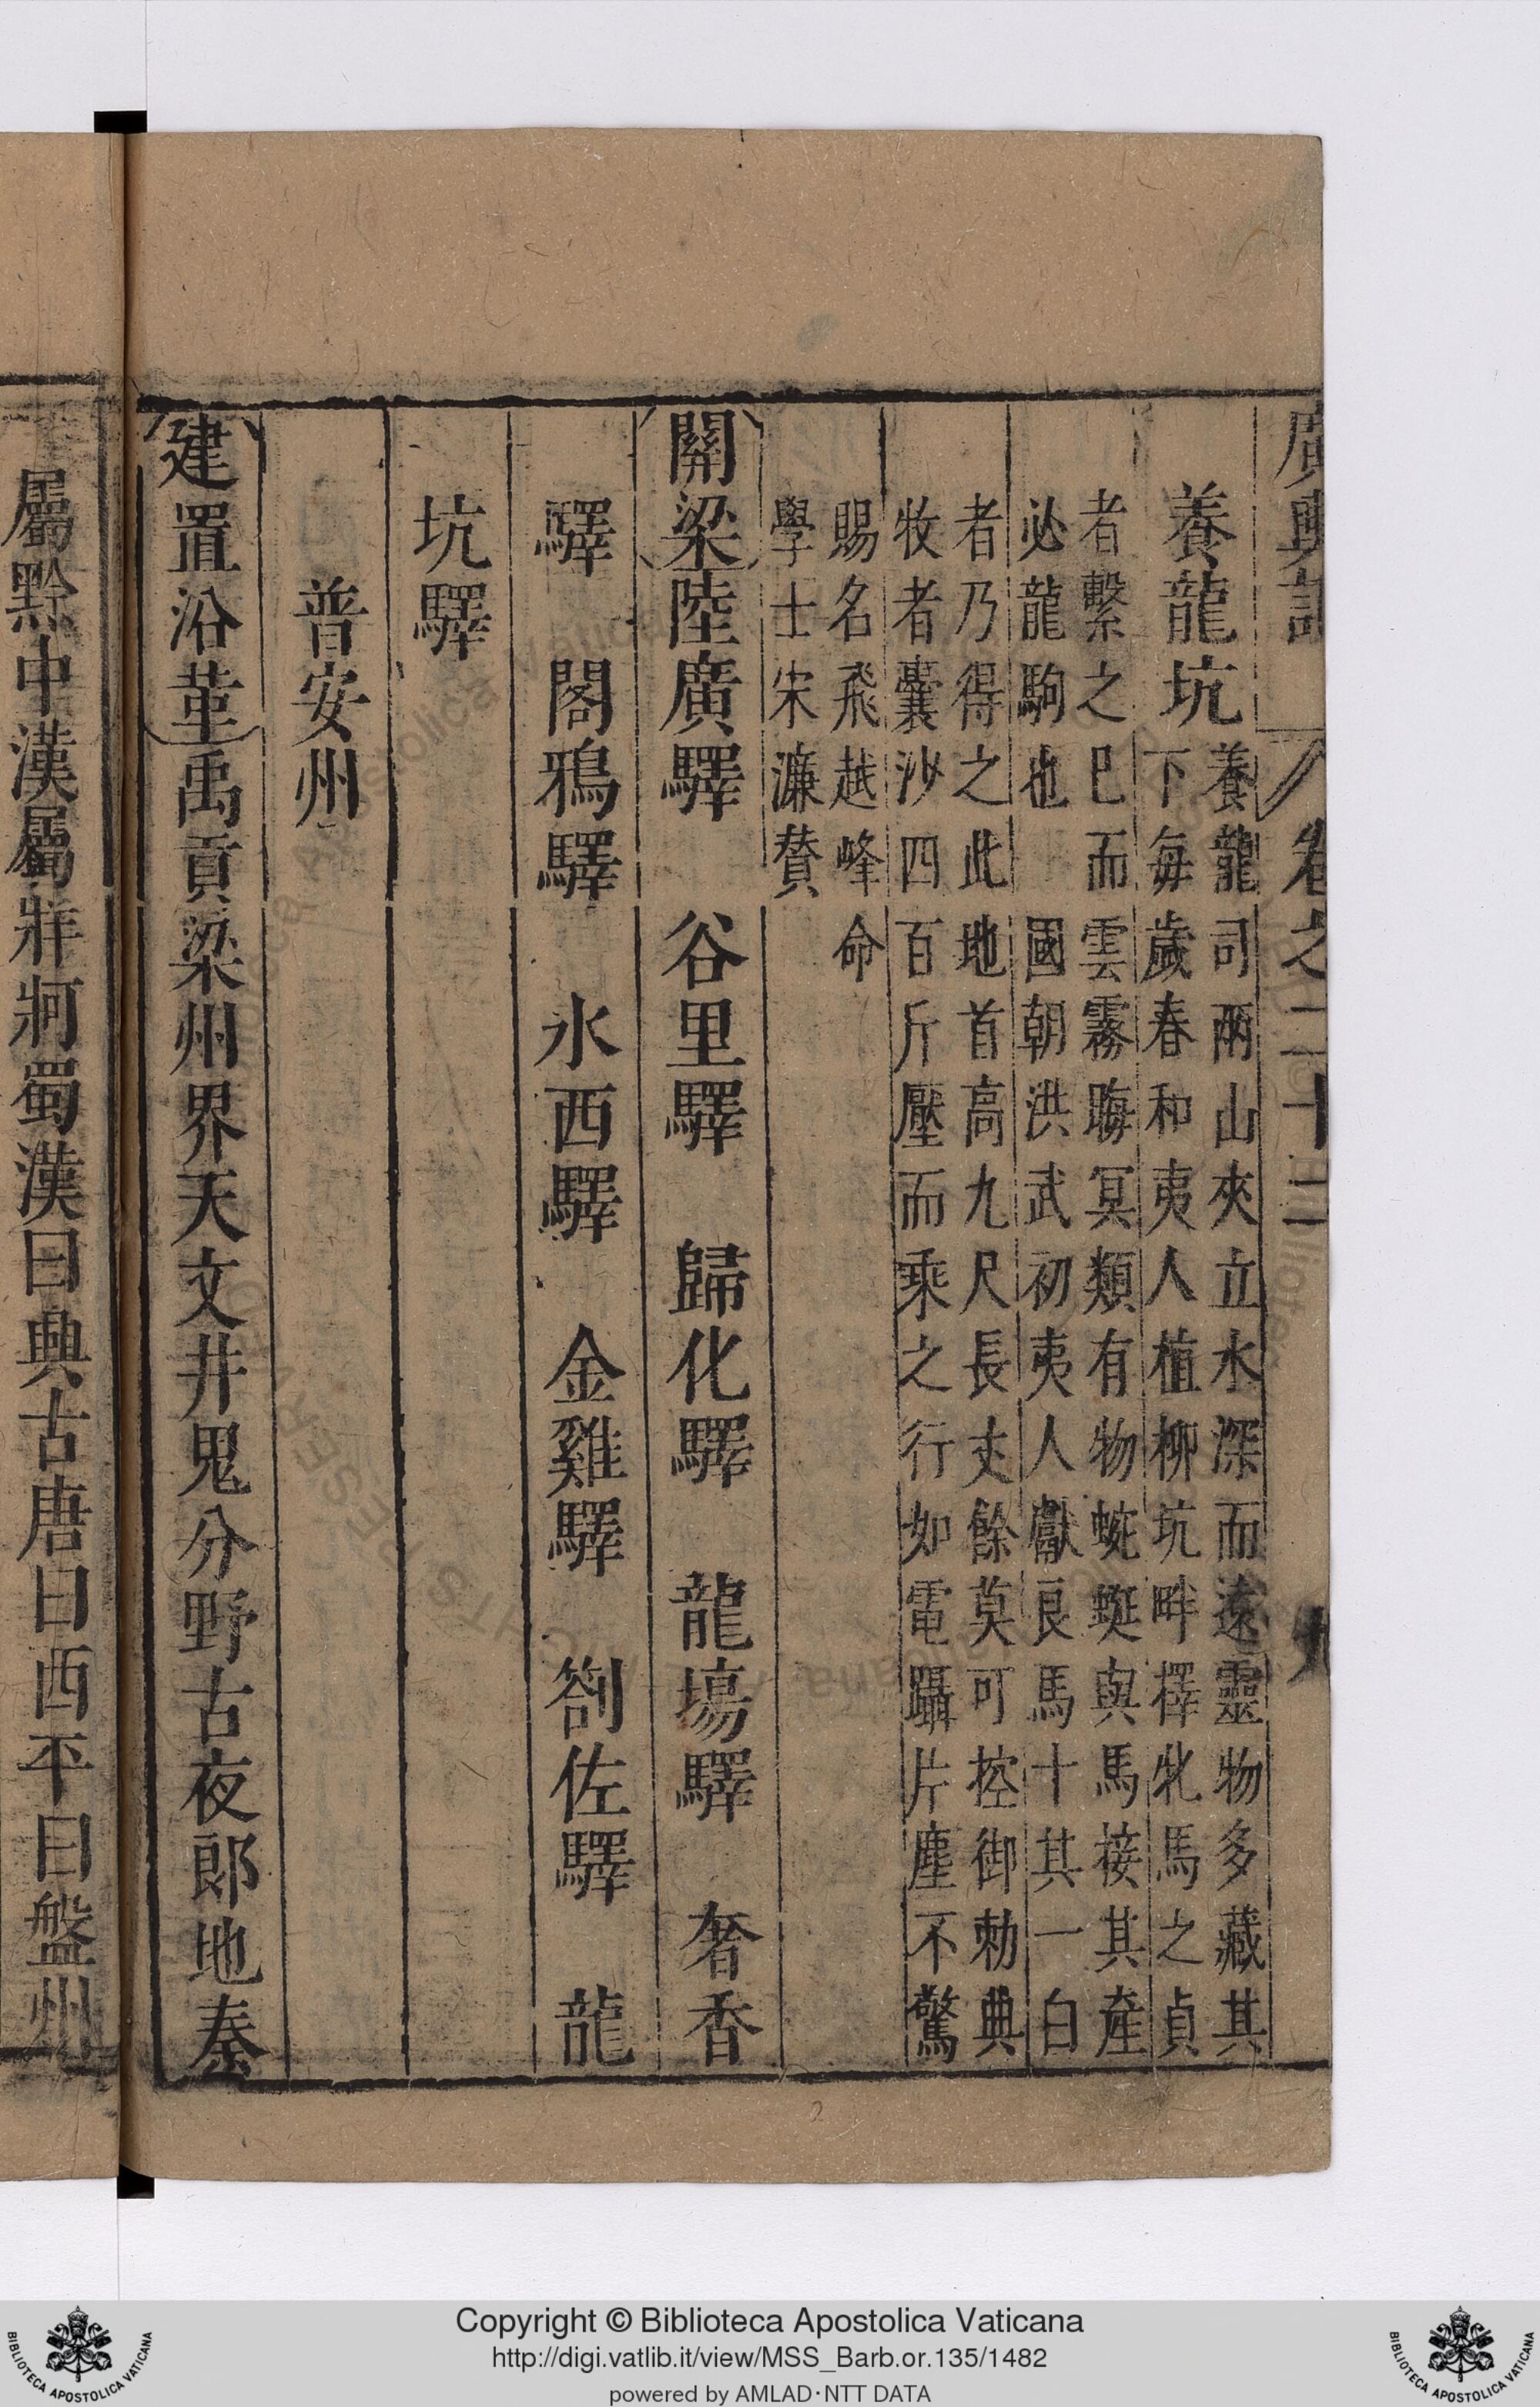 廣輿記 卷之二十二
養龍坑 養龍司兩山夾立水深而遠靈物多藏其
下每歲春和夷人植柳坑畔擇牝馬之貞
者繫之巳而雲霧晦冥類有物蜿蜒與馬接其產
必龍駒也 國朝洪武初夷人獻良馬十其一白
者乃得之此地首高九尺長丈餘莫可控御勅典
牧者囊沙四百斤壓而乘之行如電躡片塵不驚
賜名飛越峰命
學士宋濂贊
關梁 陸廣驛 谷里驛 歸化驛 龍塲驛 奢香
驛 閣鴉驛 水西驛 金雞驛 劄佐驛 龍
坑驛
普安州
建置沿革 禹貢梁州界天文井鬼分野古夜郎地秦
屬黔中漢屬牂牁蜀漢曰興古唐曰西平曰盤州
Copyright © Biblioteca Apostolica Vaticana
http://digi.vatlib.it/view/MSS_Barb.or.135/1482
powered by AMLAD·NTT DATA
BIBLIOTECA APOSTOLICA VATICANA
BIBLIOTECA APOSTOLICA VATICANA